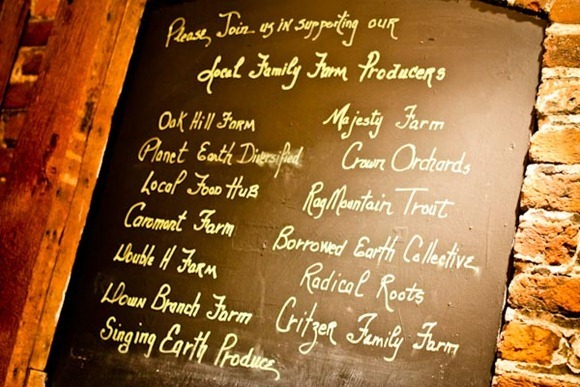 Please, Join us in supporting our
Local Family Farm Producers
Oak Hill Farm
Planet Earth Diversified
Local Food Hub
Caromont Farm
Double H Farm
Down Branch Farm
Singing Earth Produce
Majesty Farm
Crown Orchards
Rag Mountain Trout
Borrowed Earth Collective
Radical Roots
Critzer Family Farm